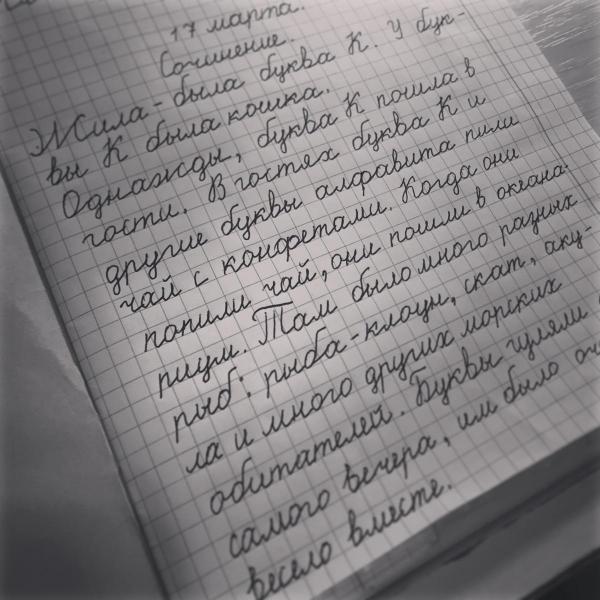 17 марта.
Сочинение.
Жила-была буква К. У бук-
вы К была кошка.
Однажды, буква К пошла в
гости. В гостях буква К и
другие буквы алфавита пили
чай с конфетами. Когда они
попили чай, они пошли в океана-
риум. Там было много разных
рыб: рыба-клоун, скат, аку-
ла и много других морских
обитателей. Буквы гуляли
самого вечера, им было
весело вместе.